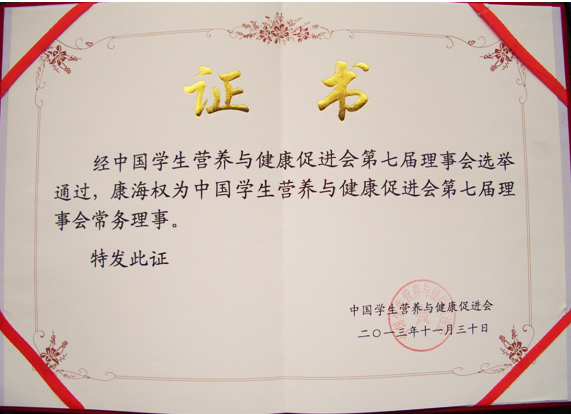 证 书
经中国学生营养与健康促进会第七届理事会选举
通过，康海权为中国学生营养与健康促进会第七届理
事会常务理事。
特发此证
中国学生营养与健康促进会
二〇一三年十一月三十日